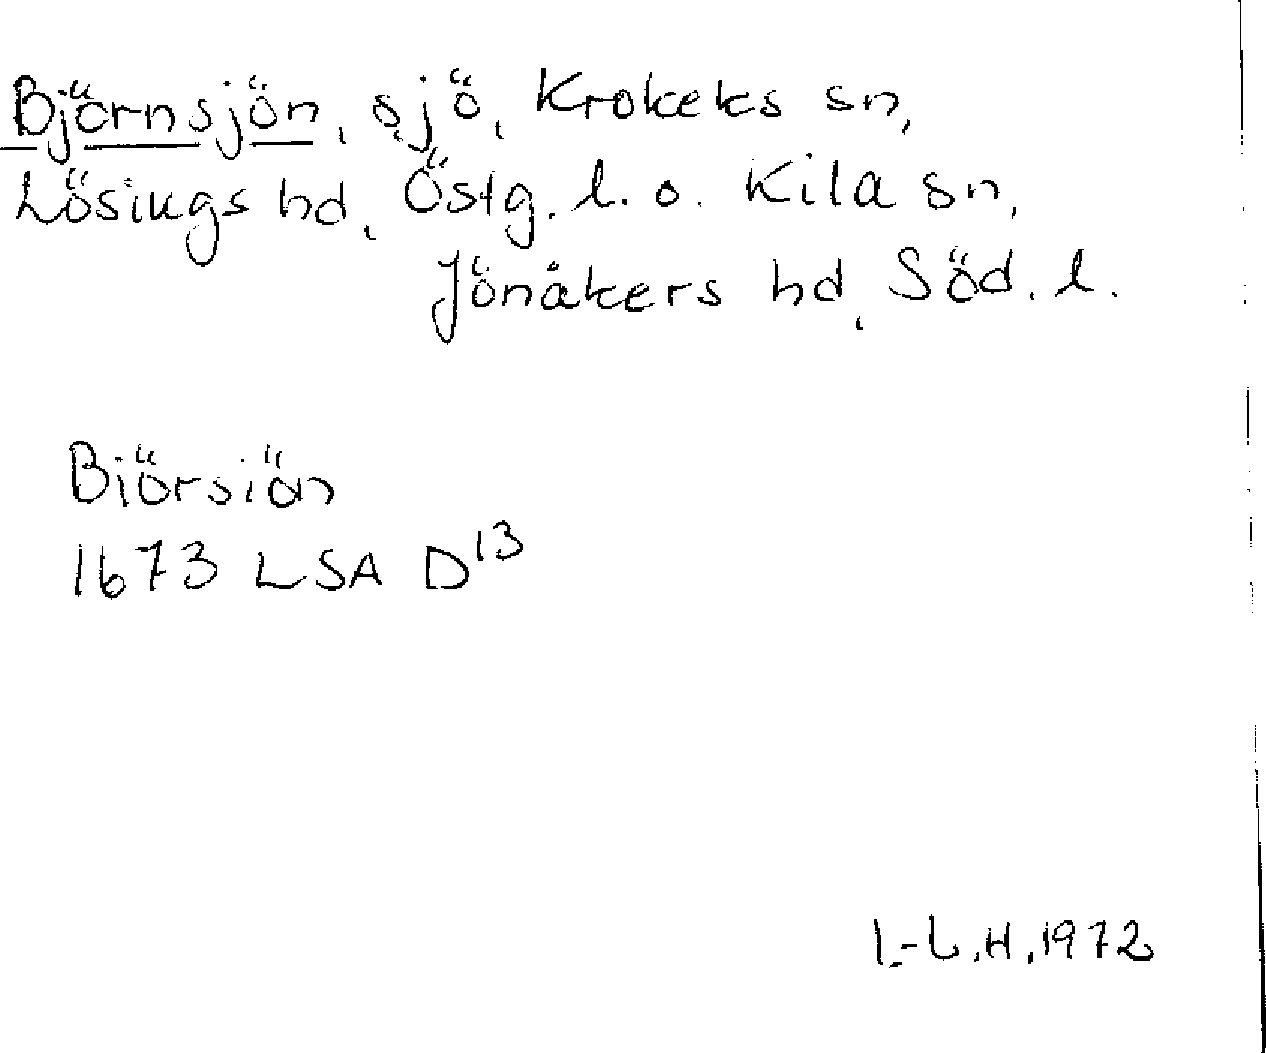 Björnsjön, sjö, Krokeks sn,
Lösings hd, Östg. l. o. Kila sn,
Jönåkers hd, Söd. l.
Biörsiön
1673 LSA D13
I.-L.H. 1972